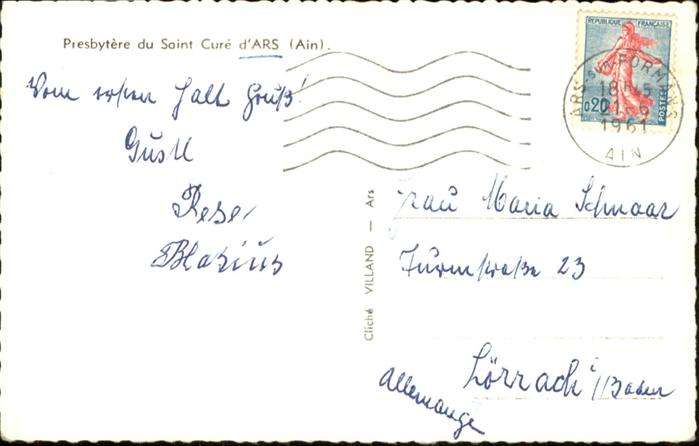 Presbytère du Saint Curé d'ARS (Ain).
Vom ersten Halt Gruß!
Gustl
Rese
Blasius
Cliché VILLAND — Ars
REPUBLIQUE FRANÇAISE
0,20
POSTES
ARS-S/-FORMANS
18H45
1961
AIN
Frau Maria Schnaar
Turmstraße 23
Lörrach i/Baden
Allemange